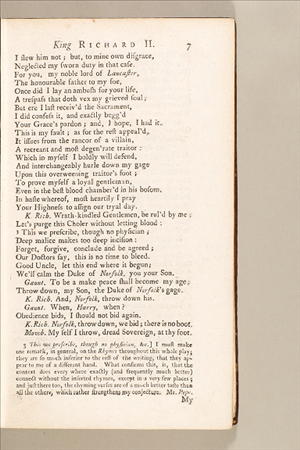 King RICHARD II. 7
I ſlew him not; but, to mine own diſgrace,
Neglected my ſworn duty in that caſe.
For you, my noble lord of Lancaſter,
The honourable father to my foe,
Once did I lay an ambuſh for your life,
A treſpaſs that doth vex my grieved ſoul;
But ere I laſt receiv'd the Sacrament,
I did confeſs it, and exactly begg'd
Your Grace's pardon; and, I hope, I had it.
This is my fault; as for the reſt appeal'd,
It iſſues from the rancor of a villain,
A recreant and moſt degen'rate traitor:
Which in myſelf I boldly will defend,
And interchangeably hurle down my gage
Upon this overweening traitor's foot;
To prove myſelf a loyal gentleman,
Even in the beſt blood chamber'd in his boſom.
In haſte whereof, moſt heartily I pray
Your Highneſs to aſſign our tryal day.
K. Rich. Wrath-kindled Gentlemen, be rul'd by me;
Let's purge this Choler without letting blood:
3 This we preſcribe, though no phyſician;
Deep malice makes too deep inciſion:
Forget, forgive, conclude and be agreed;
Our Doctors ſay, this is no time to bleed.
Good Uncle, let this end where it begun;
We'll calm the Duke of Norfolk, you your Son.
Gaunt. To be a make peace ſhall become my age;
Throw down, my Son, the Duke of Norfolk's gage.
K. Rich. And, Norfolk, throw down his.
Gaunt. When, Harry, when?
Obedience bids, I ſhould not bid again.
K. Rich. Norfolk, throw down, we bid; there is no boot.
Mowb. My ſelf I throw, dread Sovereign, at thy foot.
3 This we preſcribe, though no phyſician, &c.] I muſt make
one remark, in general, on the Rhymes throughout this whole play;
they are ſo much inferior to the reſt of the writing, that they ap-
pear to me of a different hand. What confirms this, is, that the
context does every where exactly (and frequently much better)
connect without the inſerted rhymes, except in a very few places;
and juſt there too, the rhyming verſes are of a much better taſte than
all the others, which rather ſtrengthens my conjecture. Mr. Pope.
My